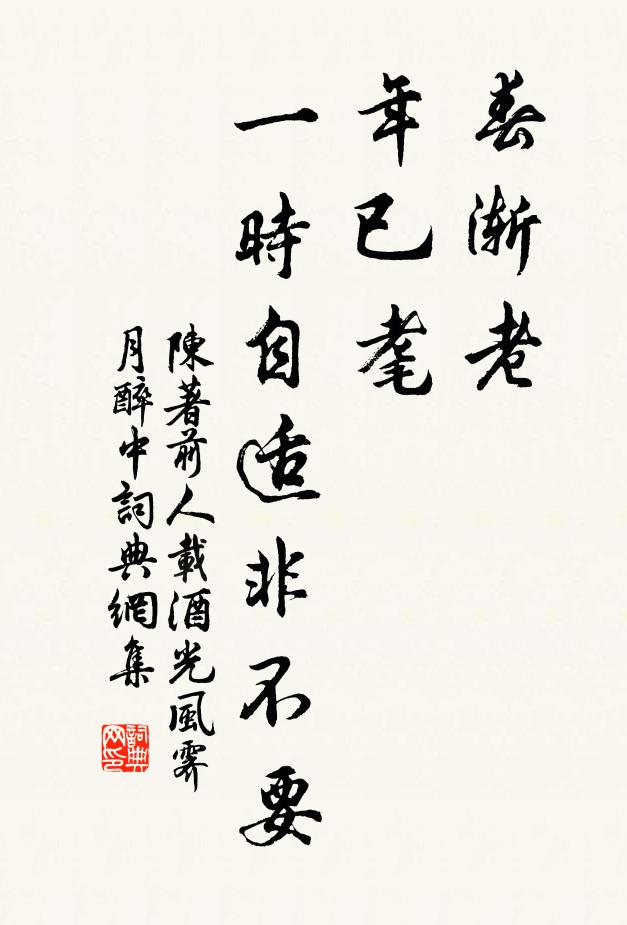 春漸老
年已耄
一時自适非不要
陳著前人載酒光風霽
月醉中詞典網集
詞典
网印